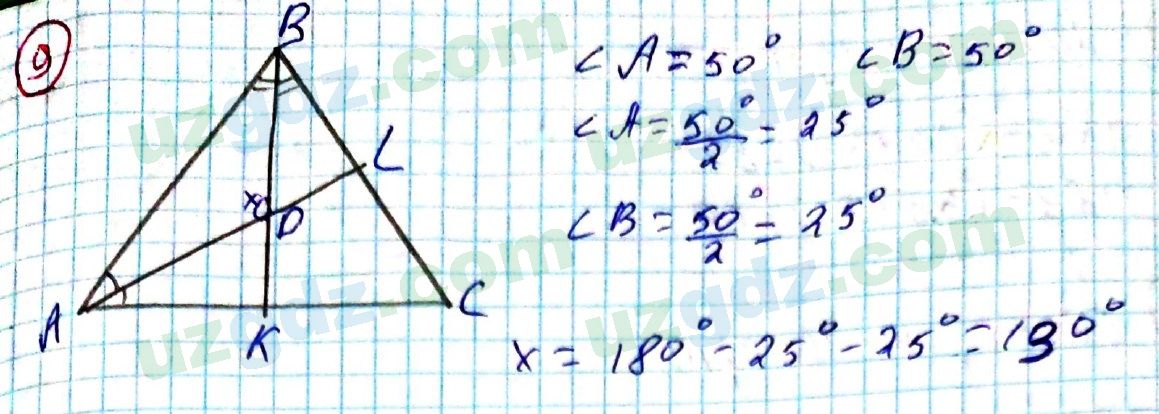 9
B
L
x D
A K C
∠A = 50° ∠B = 50°
∠A = 50°/2 = 25°
∠B = 50°/2 = 25°
x = 180° - 25° - 25° = 130°
uzgdz.com
uzgdz.com
uzgdz.com
uzgdz.com